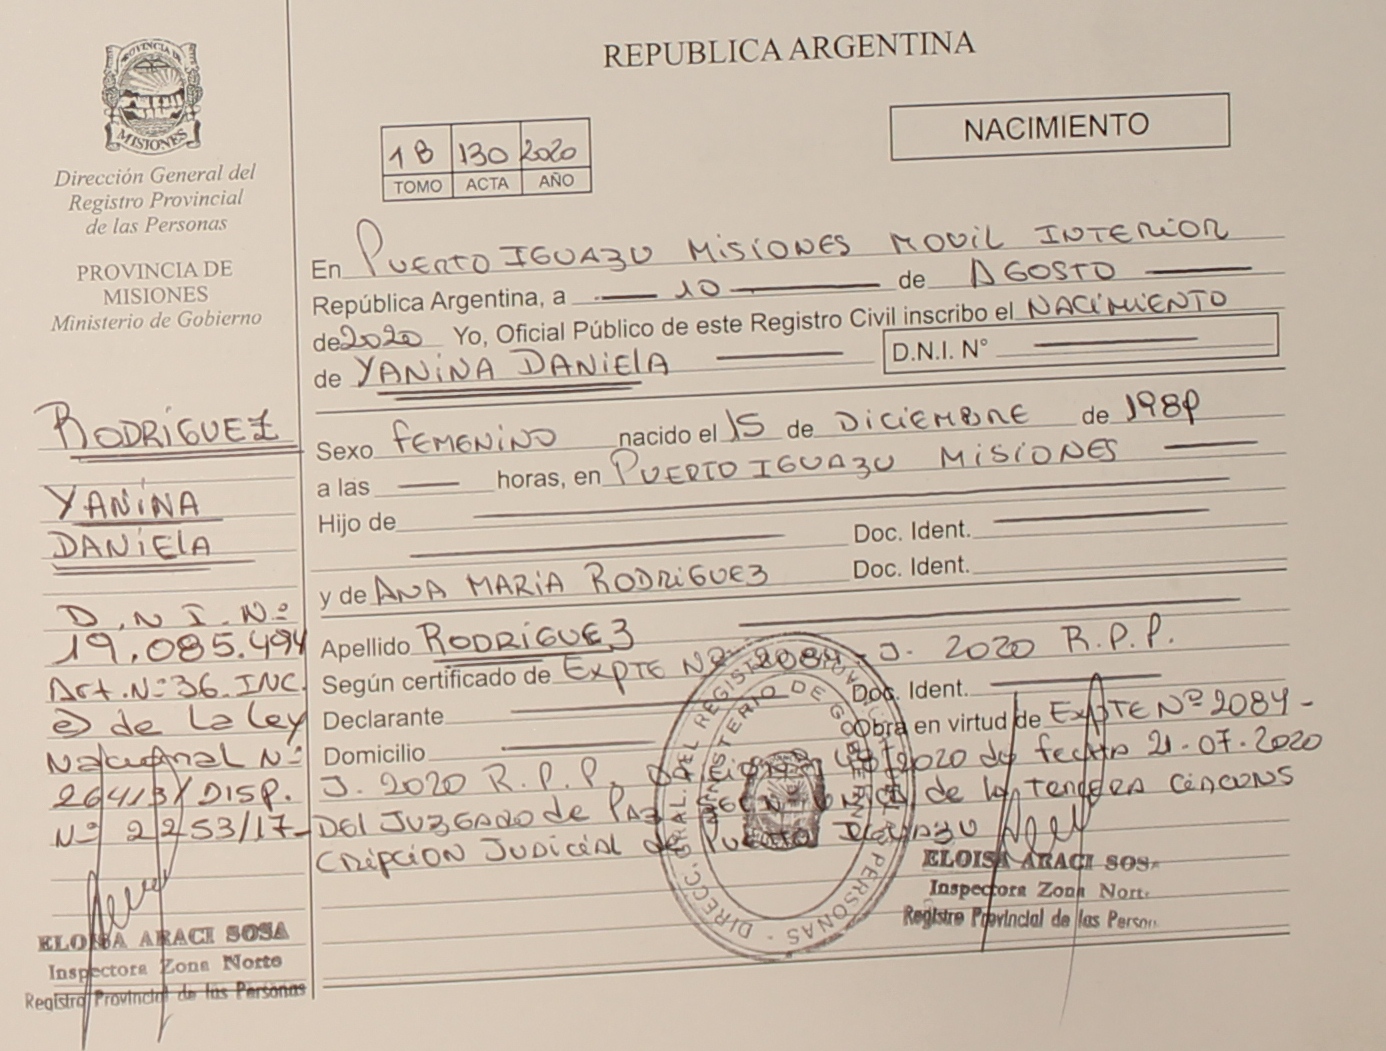 PROVINCIA DE
MISIONES
Dirección General del
Registro Provincial
de las Personas
PROVINCIA DE
MISIONES
Ministerio de Gobierno
RODRÍGUEZ
YANINA
DANIELA
D.N.I. Nº
19.085.494
Art. Nº 36 INC.
e) de La Ley
Nacional Nº
26413/DISP.
Nº 2253/17-
ELOISA ARACI SOSA
Inspectora Zona Norte
Registro Provincial de las Personas
REPUBLICA ARGENTINA
NACIMIENTO
1B 130 2020
TOMO ACTA AÑO
En PUERTO IGUAZU MISIONES MOVIL INTERIOR
República Argentina, a 10 de AGOSTO
de 2020 Yo, Oficial Público de este Registro Civil inscribo el NACIMIENTO
de YANINA DANIELA D.N.I. N°
Sexo FEMENINO nacido el 15 de DICIEMBRE de
a las horas, en PUERTO IGUAZU MISIONES
Hijo de
Doc. Ident.
y de ANA MARIA RODRIGUEZ Doc. Ident.
Apellido RODRÍGUEZ
Según certificado de EXPTE Nº 2084-J. 2020 R.P.P.
Declarante Doc. Ident.
Domicilio Obra en virtud de EXPTE Nº 2084-
J. 2020 R.P.P. 2020 de fecha 21.07.2020
DEL JUZGADO de PAZ de la TERCERA CIRCUNS
CRIPCION JUDICIAL de PUERTO IGUAZU
DIRECC. GRAL. DEL REGISTRO PROVINCIAL DE LAS PERSONAS
MINISTERIO DE GOBIERNO
ELOISA ARACI SOS
Inspectora Zona Norte
Registro Provincial de las Person